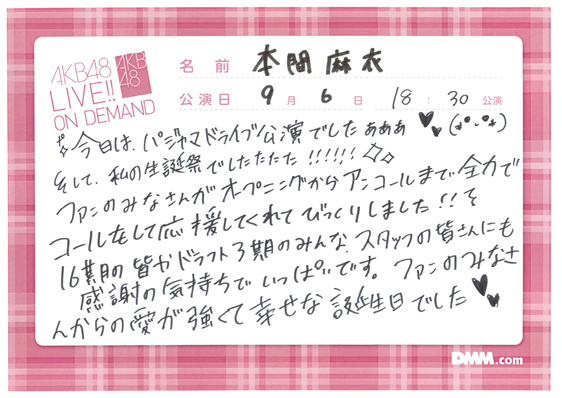 AKB48
LIVE!!
ON DEMAND
AKB
48
名前 本間麻衣
公演日 9月6日 18:30 公演
今日は、パジャマドライブ公演でしたぁぁぁ
そして、私の生誕祭でしたたたた!!!!!!
ファンのみなさんがオープニングからアンコールまで全力で
コールをして応援してくれてびっくりしました!!そ
16期の皆やドラフト3期のみんな、スタッフの皆さんにも
感謝の気持ちでいっぱいです。ファンのみなさ
んからの愛が強くて幸せな誕生日でした
DMM.com